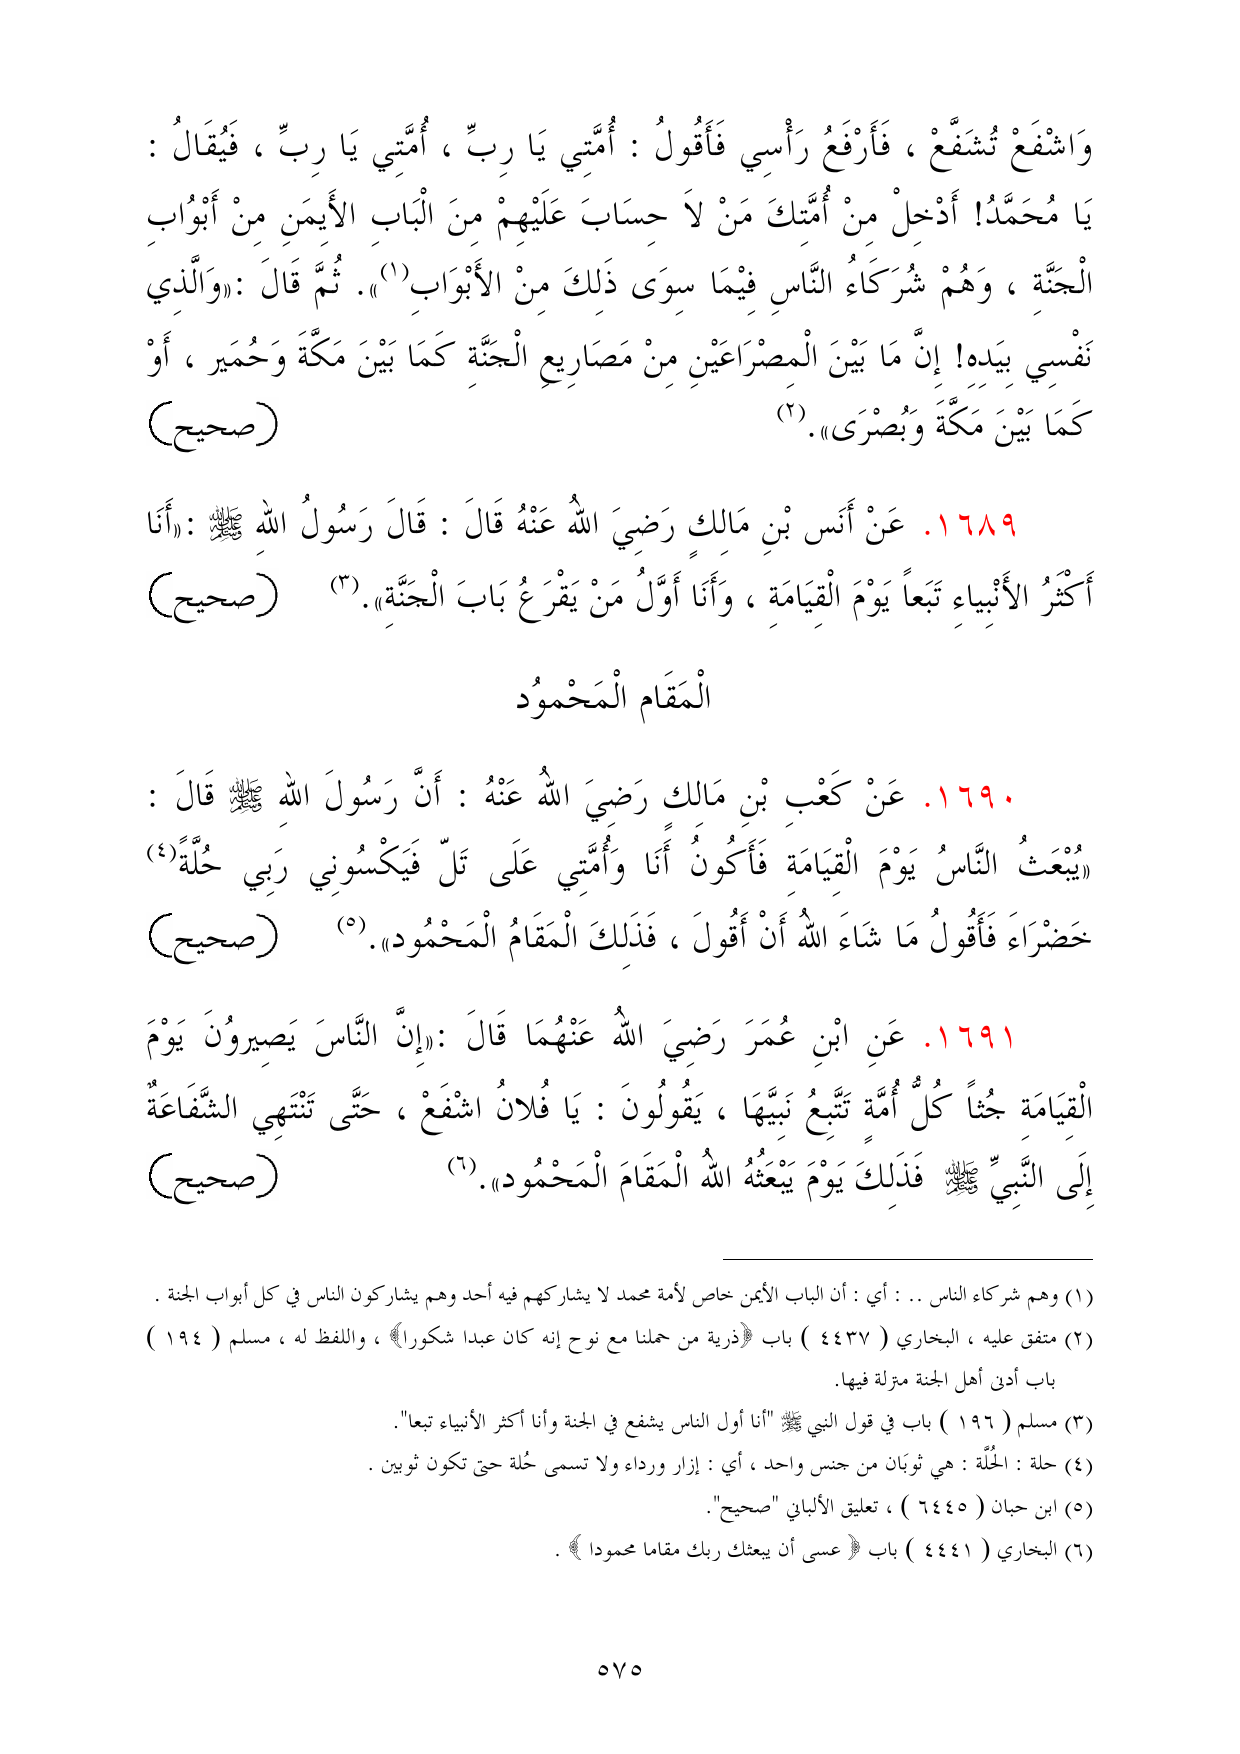 وَاشْفَعْ تُشَفَّعْ ، فَأَرْفَعُ رَأْسِي فَأَقُولُ : أُمَّتِي يَا رِبِّ ، أُمَّتِي يَا رِبِّ ، فَيُقَالُ :
يَا مُحَمَّدُ! أَدْخِلْ مِنْ أُمَّتِكَ مَنْ لاَ حِسَابَ عَلَيْهِمْ مِنَ الْبَابِ الأَيِمَنِ مِنْ أَبْوُابِ
الْجَنَّةِ ، وَهُمْ شُرَكَاءُ النَّاسِ فِيْمَا سِوَى ذَلِكَ مِنْ الأَبْوَابِ(١)». ثُمَّ قَالَ :«وَالَّذِي
نَفْسِي بِيَدِهِ! إِنَّ مَا بَيْنَ الْمِصْرَاعَيْنِ مِنْ مَصَارِيعِ الْجَنَّةِ كَمَا بَيْنَ مَكَّةَ وَحُمَيِر ، أَوْ
كَمَا بَيْنَ مَكَّةَ وَبُصْرَى».(٢) (صحيح)
١٦٨٩. عَنْ أَنَسِ بْنِ مَالِكٍ رَضِيَ اللهُ عَنْهُ قَالَ : قَالَ رَسُولُ اللهِ ﷺ :«أَنَا
أَكْثَرُ الأَنْبِياءِ تَبَعاً يَوْمَ الْقِيَامَةِ ، وَأَنَا أَوَّلُ مَنْ يَقْرَعُ بَابَ الْجَنَّةِ».(٣) (صحيح)
الْمَقَام الْمَحْموُد
١٦٩٠. عَنْ كَعْبِ بْنِ مَالِكٍ رَضِيَ اللهُ عَنْهُ : أَنَّ رَسُولَ اللهِ ﷺ قَالَ :
«يُبْعَثُ النَّاسُ يَوْمَ الْقِيَامَةِ فَأَكُونُ أَنَا وَأُمَّتِي عَلَى تَلّ فَيَكْسُونِي رَبِي حُلَّةً(٤)
خَضْرَاءَ فَأَقُولُ مَا شَاءَ اللهُ أَنْ أَقُولَ ، فَذَلِكَ الْمَقَامُ الْمَحْمُود».(٥) (صحيح)
١٦٩١. عَنِ ابْنِ عُمَرَ رَضِيَ اللهُ عَنْهُمَا قَالَ :«إِنَّ النَّاسَ يَصِيروُنَ يَوْمَ
الْقِيَامَةِ جُثاً كُلُّ أُمَّةٍ تَتَّبِعُ نَبِيَّهَا ، يَقُولُونَ : يَا فُلانُ اشْفَعْ ، حَتَّى تَنْتَهِي الشَّفَاعَةٌ
إِلَى النَّبِيِّ ﷺ فَذَلِكَ يَوْمَ يَبْعَثُهُ اللهُ الْمَقَامَ الْمَحْمُود».(٦) (صحيح)
(١) وهم شركاء الناس .. : أي : أن الباب الأيمن خاص لأمة محمد لا يشاركهم فيه أحد وهم يشاركون الناس في كل أبواب الجنة .
(٢) متفق عليه ، البخاري ( ٤٤٣٧ ) باب ﴿ذرية من حملنا مع نوح إنه كان عبدا شكورا﴾ ، واللفظ له ، مسلم ( ١٩٤ )
باب أدنى أهل الجنة منزلة فيها.
(٣) مسلم ( ١٩٦ ) باب في قول النبي ﷺ "أنا أول الناس يشفع في الجنة وأنا أكثر الأنبياء تبعا".
(٤) حلة : الحُلَّة : هي ثوبَان من جنس واحد ، أي : إزار ورداء ولا تسمى حُلة حتى تكون ثوبين .
(٥) ابن حبان ( ٦٤٤٥ ) ، تعليق الألباني "صحيح".
(٦) البخاري ( ٤٤٤١ ) باب ﴿ عسى أن يبعثك ربك مقاما محمودا ﴾ .
٥٧٥